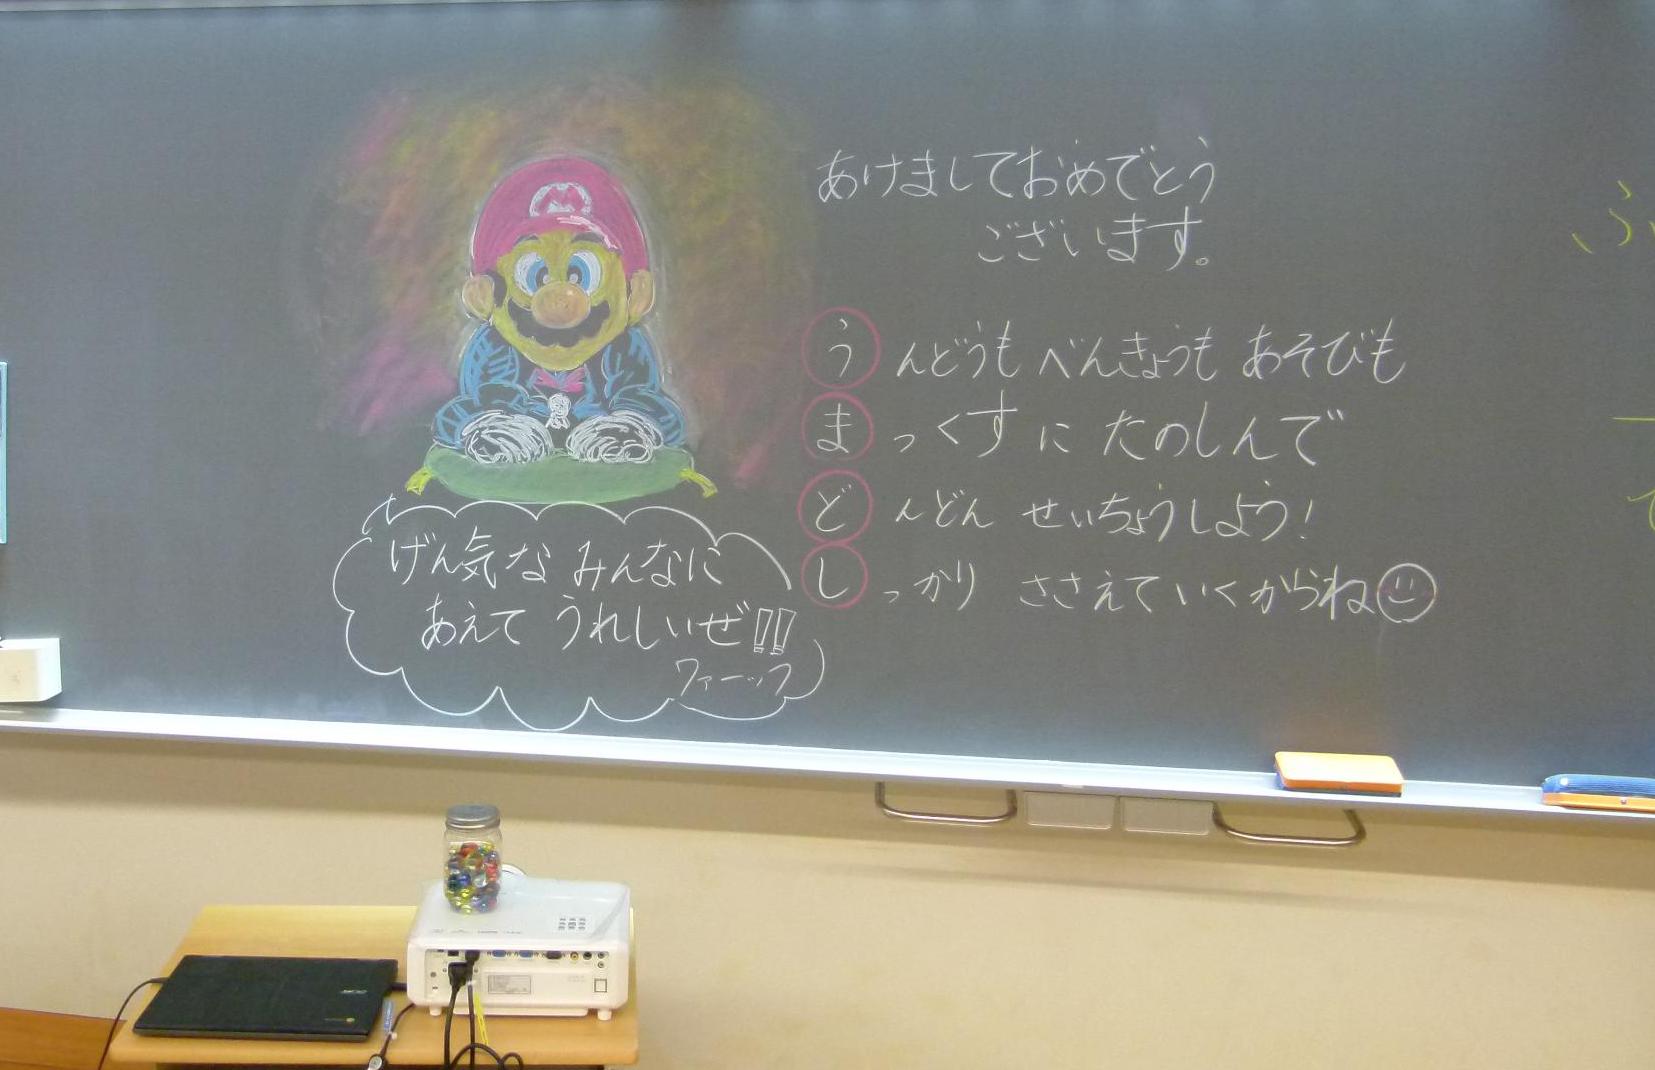 あけましておめでとう
ございます。
うんどうも べんきょうも あそびも
まっくすに たのしんで
どんどん せいちょうしよう！
しっかり ささえていくからね
げん気な みんなに
あえて うれしいぜ!!
ワァーッフ
M